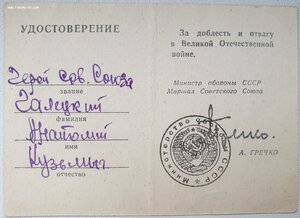 УДОСТОВЕРЕНИЕ
Герой Сов. Союза
звание
Галецкий
фамилия
Анатолий
имя
Кузьмич
отчество
За доблесть и отвагу
в Великой Отечественной
войне.
Министр обороны СССР
Маршал Советского Союза
А. ГРЕЧКО
Министерство обороны СССР